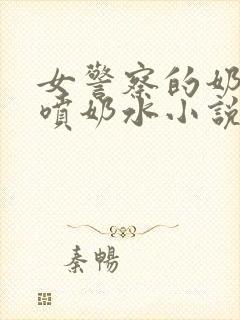 女警察的奶
噴奶水小說
秦暢